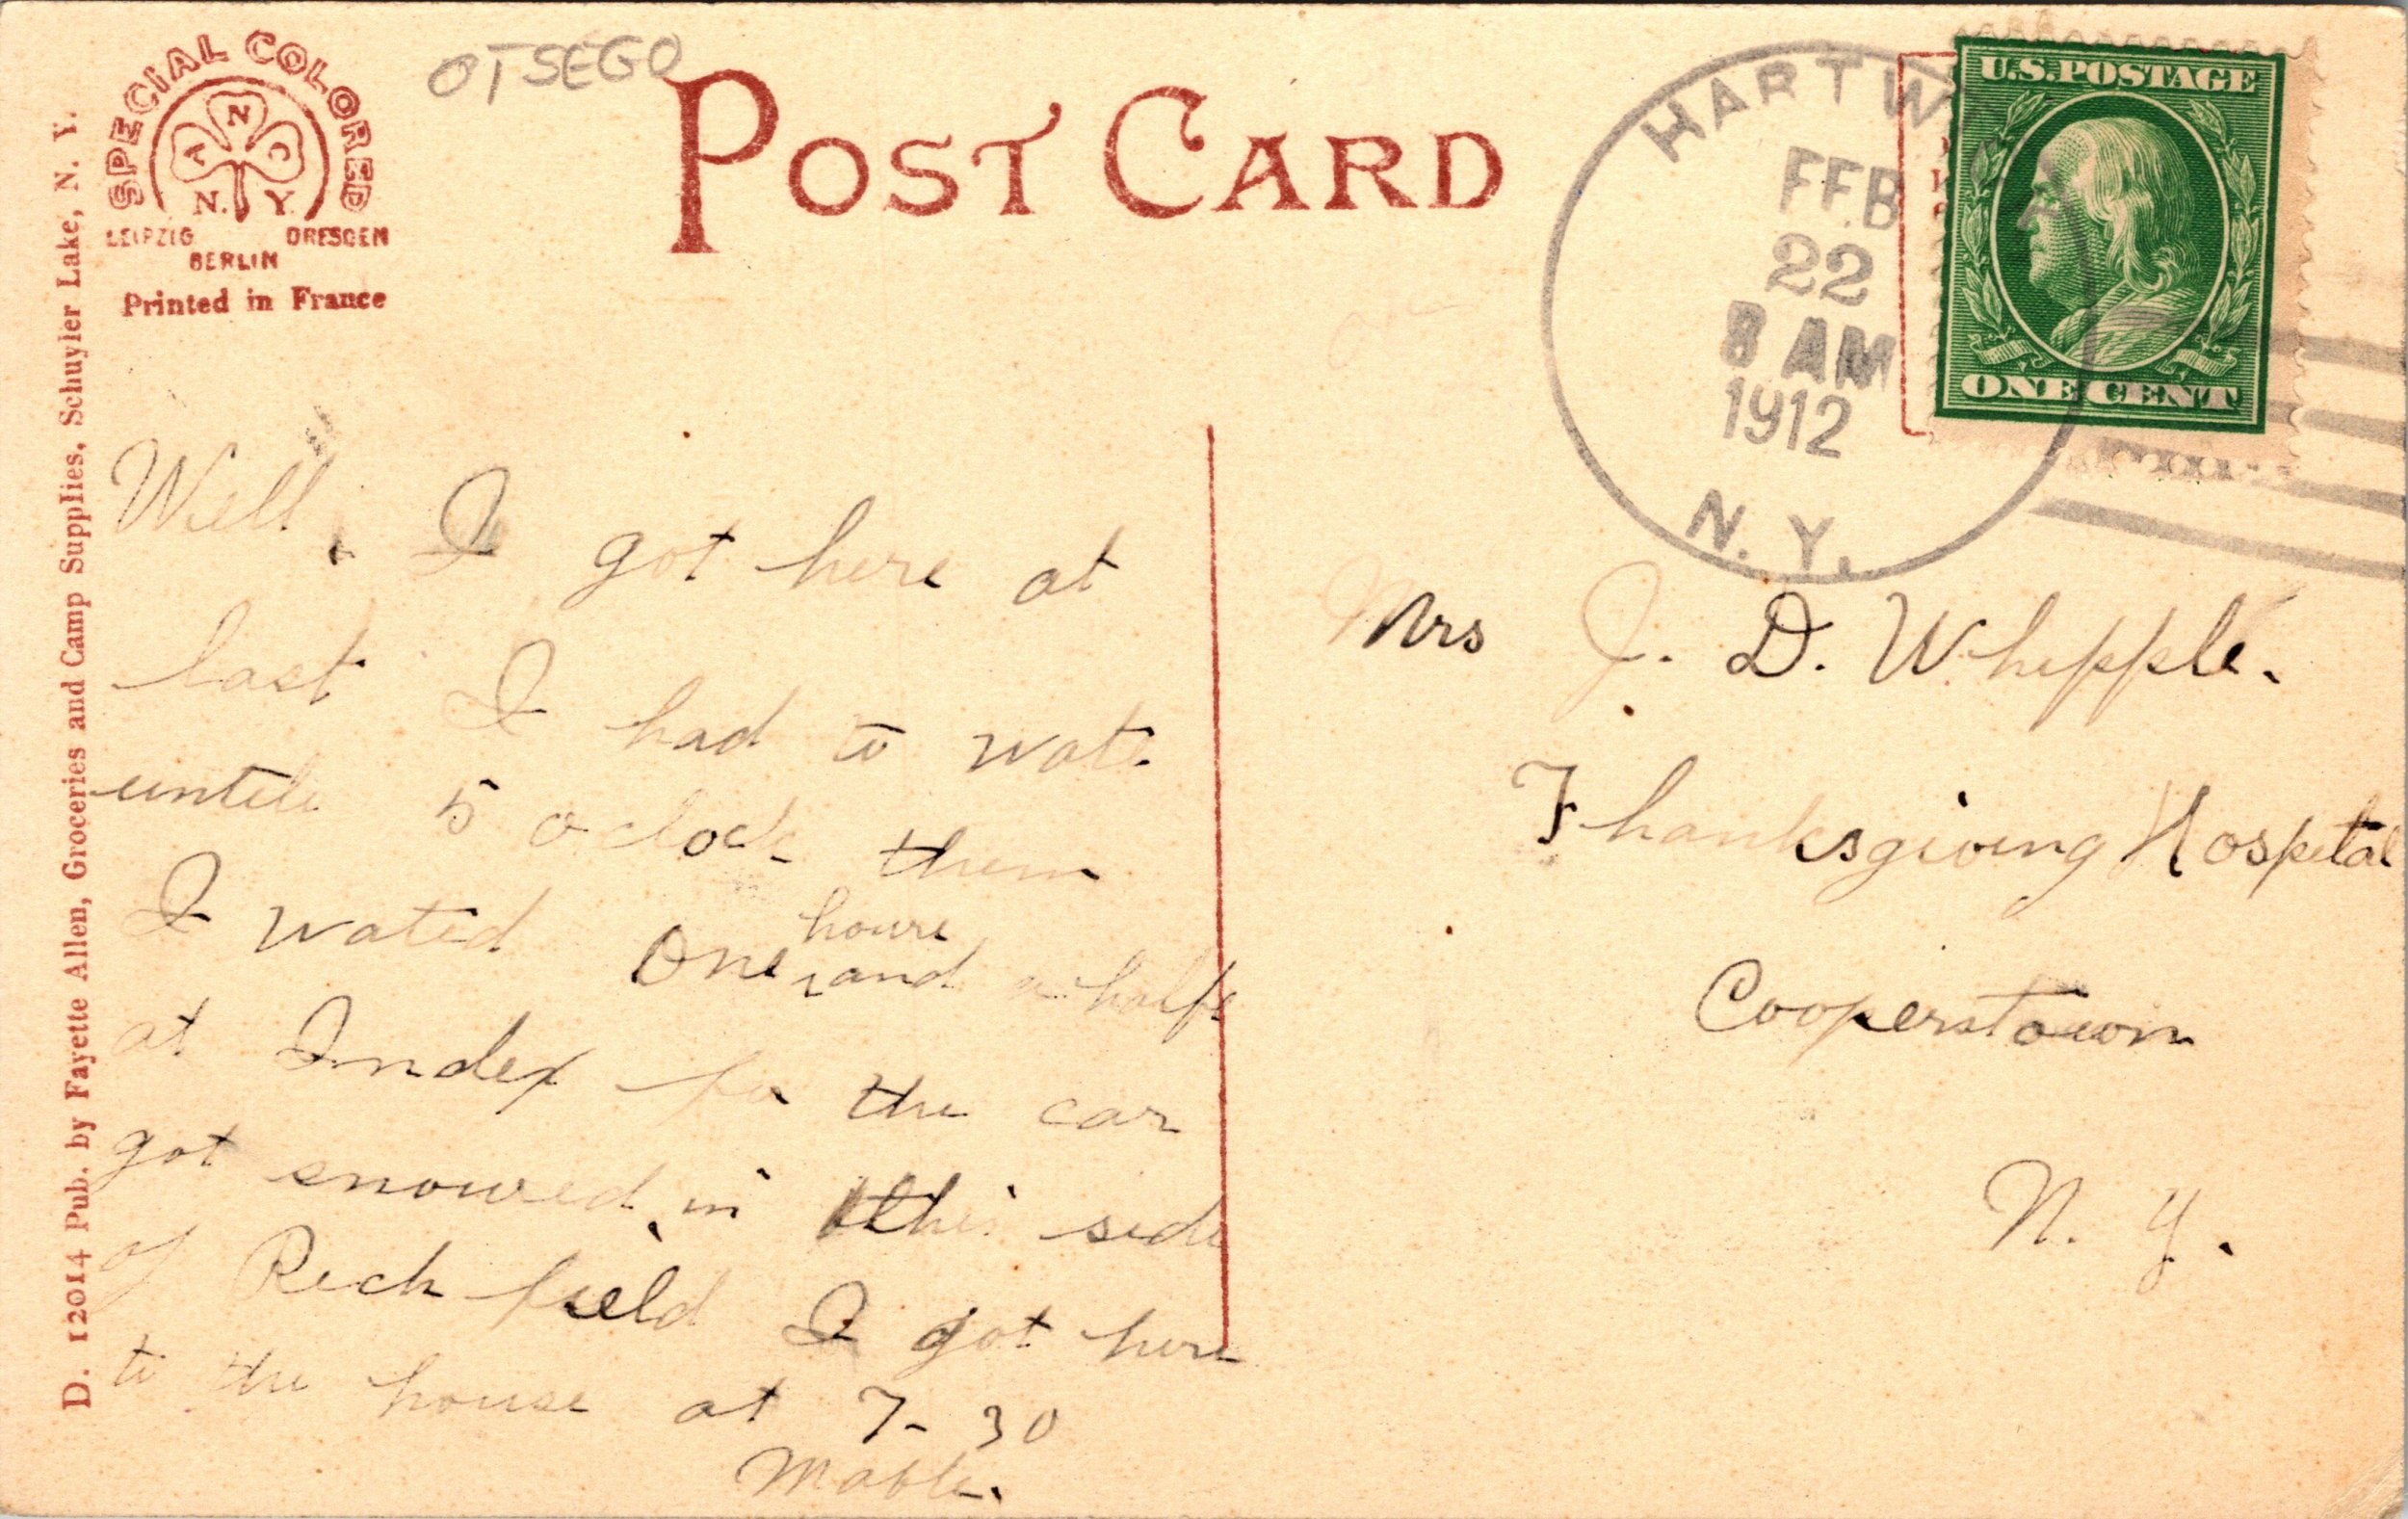 OTSEGO
SPECIAL COLORED
A N C
N. Y.
LEIPZIG DRESDEN
BERLIN
Printed in France
POST CARD
HARTW
FEB
22
8 AM
1912
N. Y.
U.S. POSTAGE
ONE CENT
D. 12014 Pub. by Fayette Allen, Groceries and Camp Supplies, Schuyler Lake, N. Y.
Well, I got here at
last I had to wate
untile 5 o clock then
I wated One houre and a halfe
at Index for the car
got snowed in this side
of Rich field I got here
to the house at 7-30
Mable.
Mrs J. D. Whipple.
Thanksgiving Hospital
Cooperstown
N. Y.